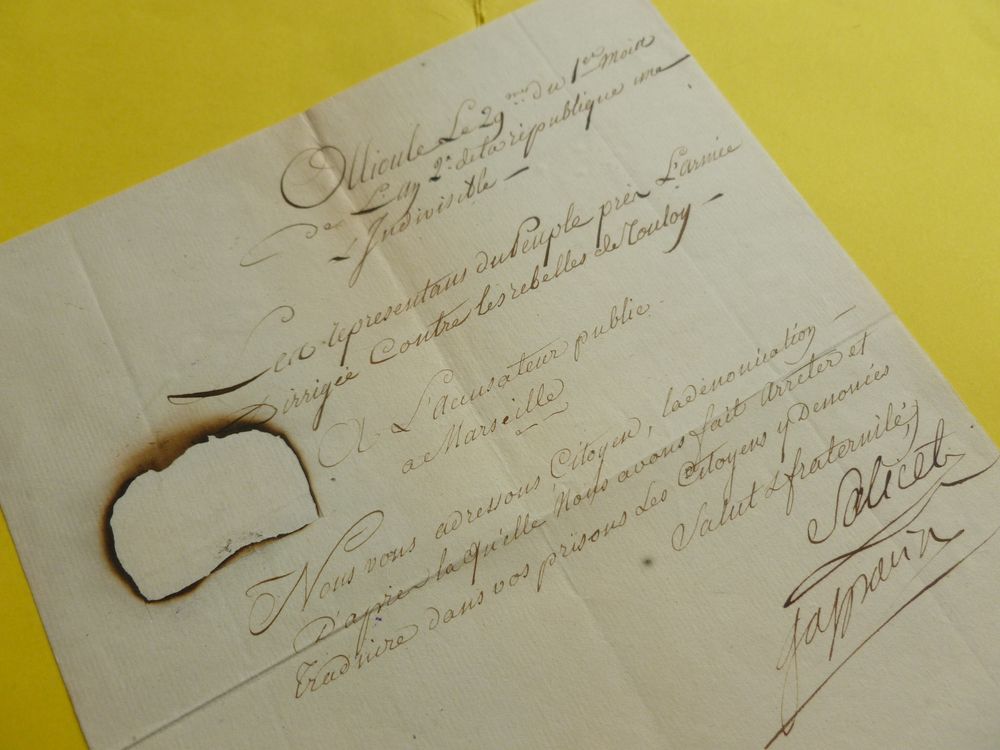 Ollioule Le 29me du 1er mois
de L'an 2e de la république une
& Indivisible —
Les représentans du Peuple près L'armée
Dirrigée Contre les rebelles de Toulon —
A L'acusateur public
a Marseille
Nous vous adressons Citoyen, la dénonciation —
D'après la qu'elle Nous avons fait arrêter et
traduire dans vos prisons Les Citoyens y Denoncés
Salut & fraternité,
Salicet
Gasparin